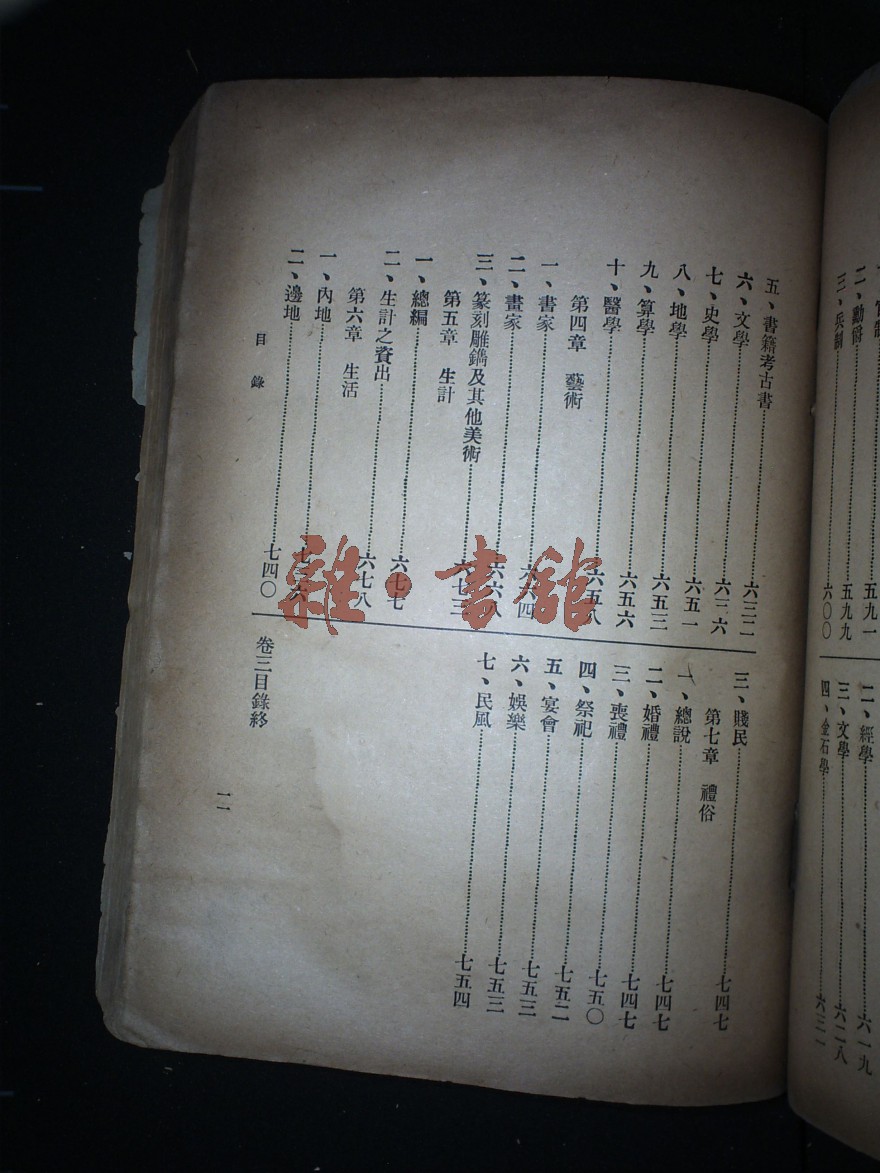 官制……五九一
二、勳爵……五九九
三、兵制……六〇〇
二、經學……六一九
三、文學……六二八
四、金石學……六三一
五、書籍考古書……六三二
六、文學……六三六
七、史學……六五一
八、地學……六五三
九、算學……六五六
十、醫學……六五八
第四章　藝術
一、書家……六六四
二、畫家……六六八
三、篆刻雕鐫及其他美術……六七三
第五章　生計
一、總編……六七七
二、生計之資出……六七八
第六章　生活
一、內地……七三六
二、邊地……七四〇
三、賤民……七四七
第七章　禮俗
一、總說……七四七
二、婚禮……七四七
三、喪禮……七五〇
四、祭祀……七五二
五、宴會……七五三
六、娛樂……七五三
七、民風……七五四
卷三目錄終
目錄
一一
雜·書館